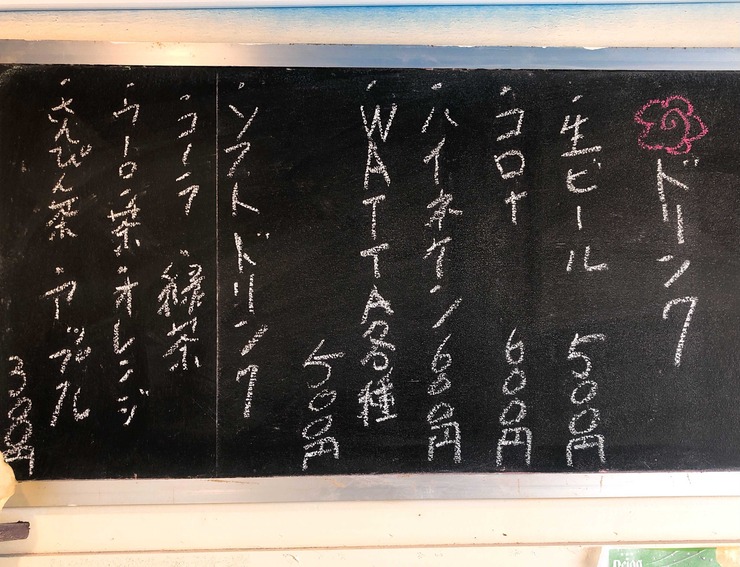 ドリンク
・生ビール 500円
・コロナ 600円
・ハイネケン 600円
・WATTA各種
500円
・ソフトドリンク
・コーラ ・緑茶
・ウーロン茶 ・オレンジ
・さんぴん茶 ・アップル
300円